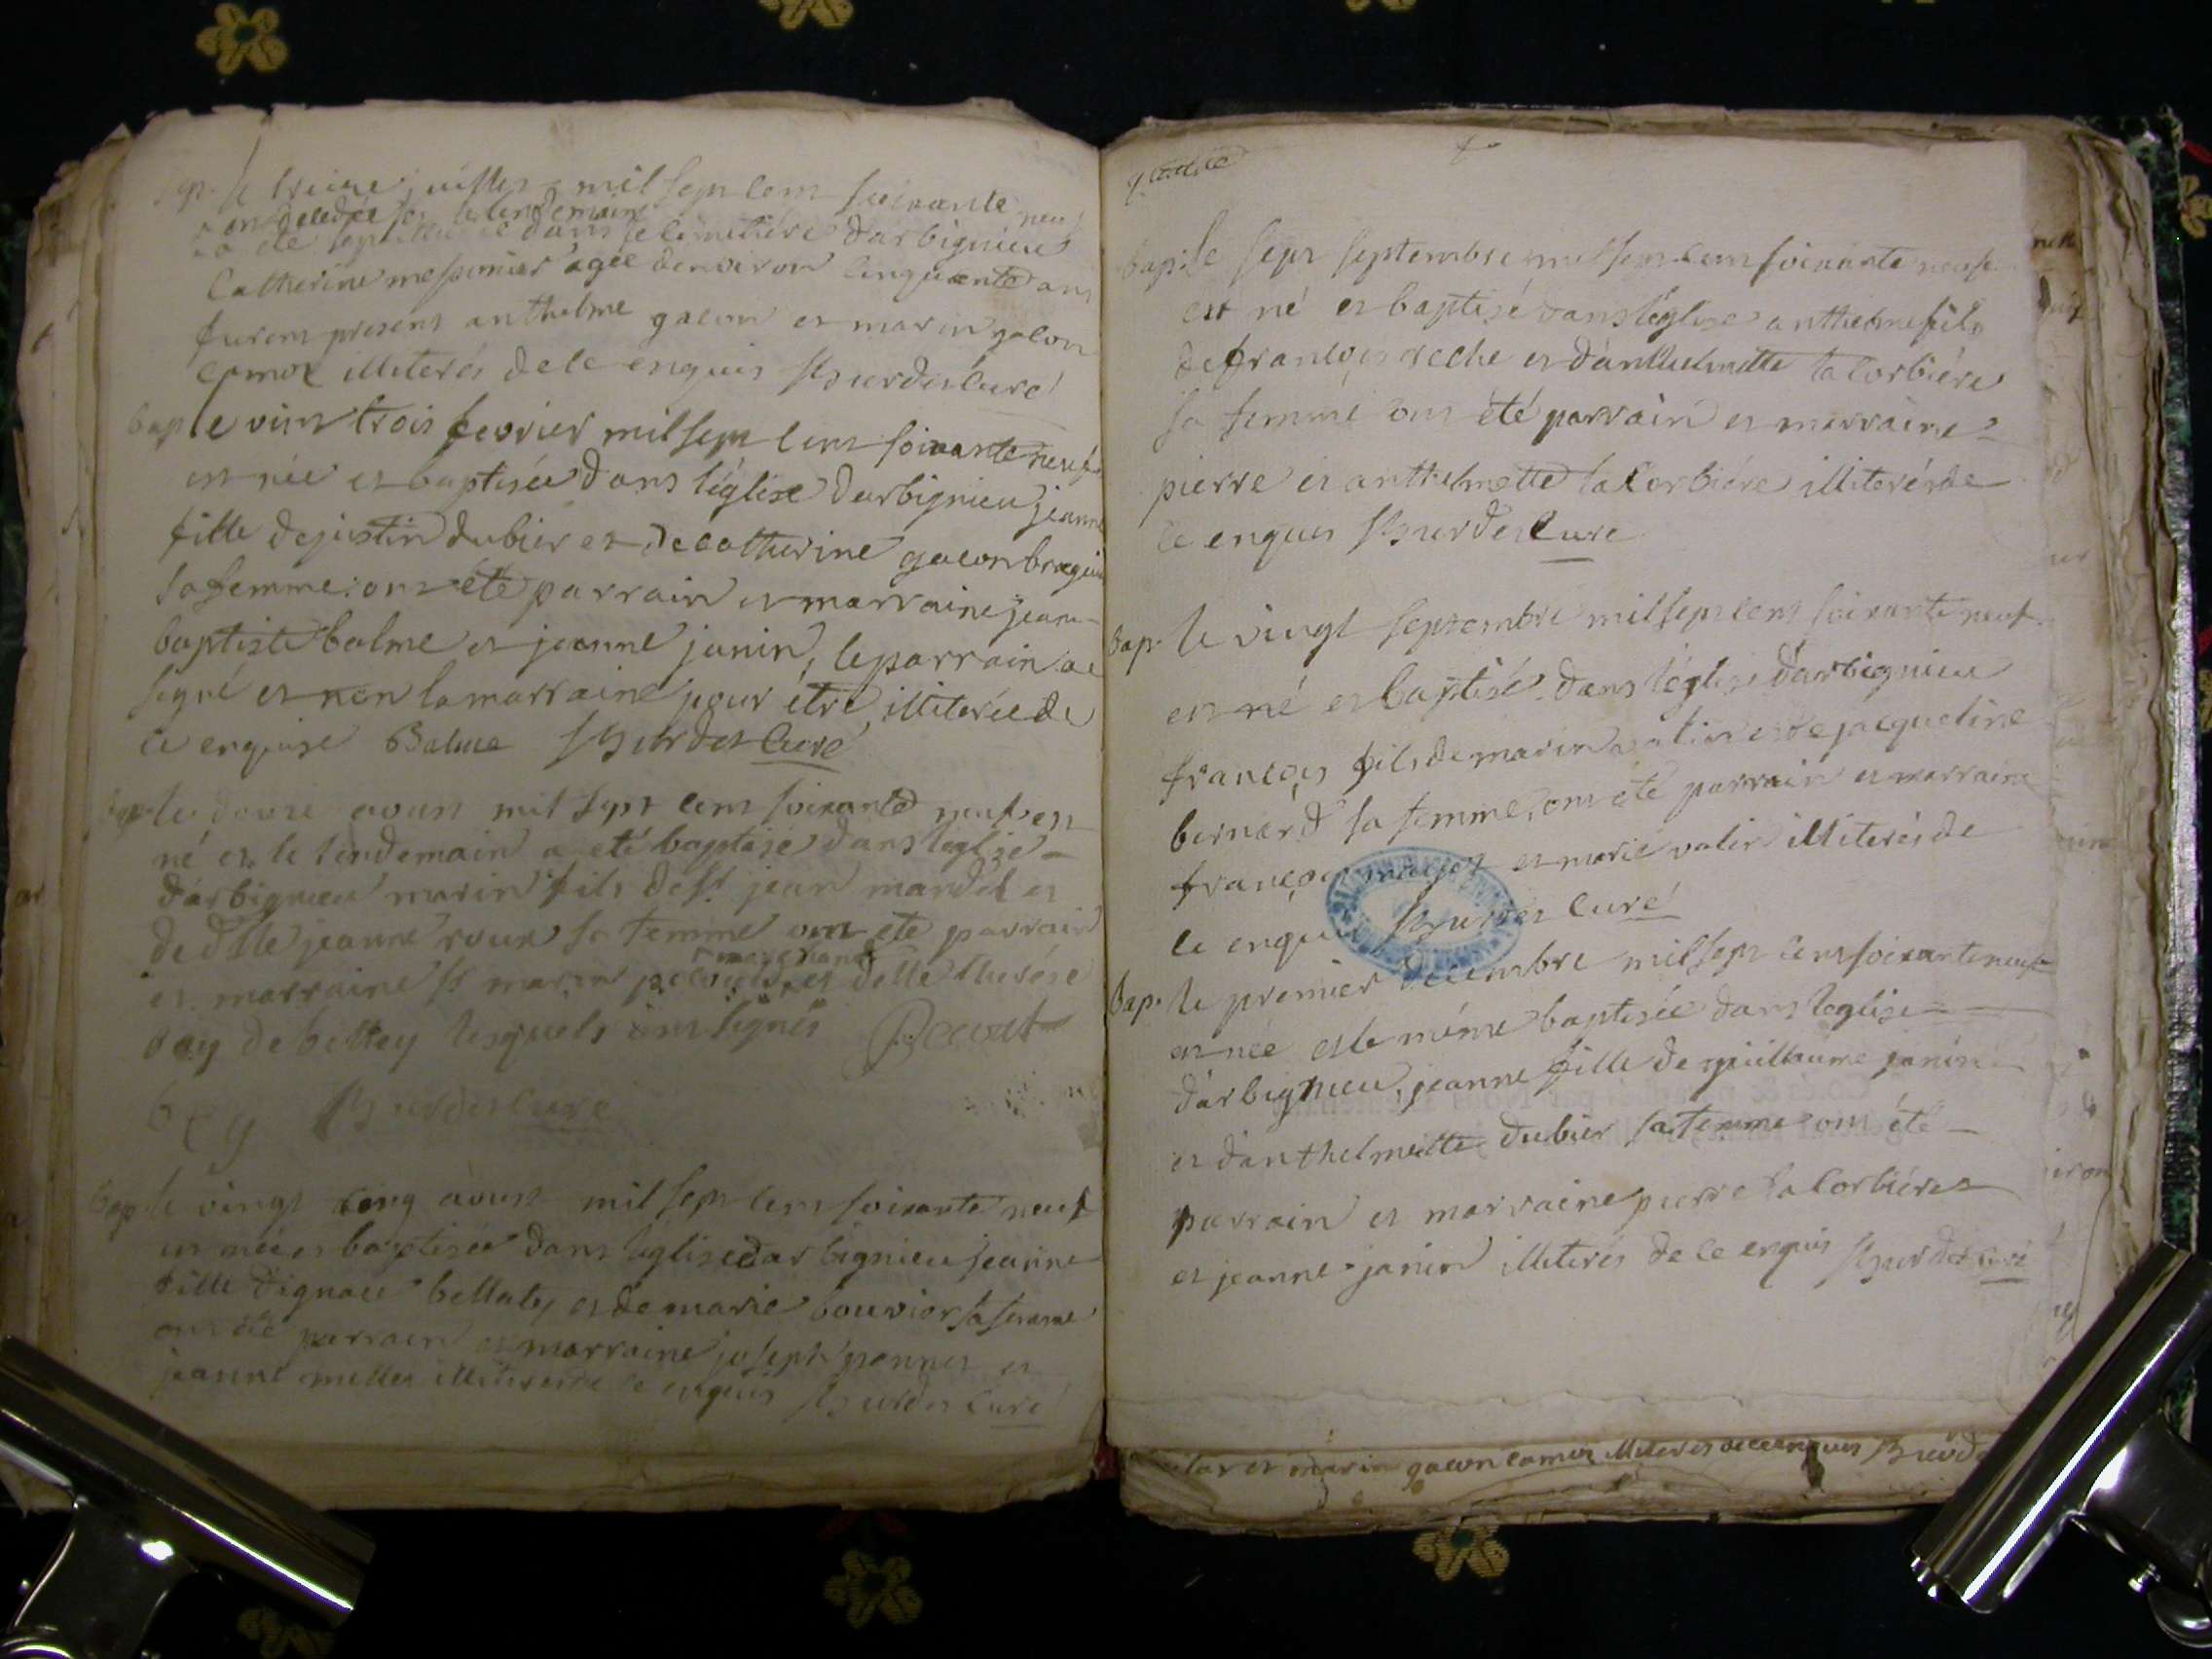 Sep. le treize juillet mil sept cent soixante neuf
le lendemain
a été dans le cimetière darbignieu
Catherine mesunier agée denviron cinquante ans
furent present anthelme gacon et marin gacon
camoz illiterés de ce enquis Burdet Curé
bap le vint trois fevrier mil sept cent soixante neuf
est née et baptisée dans l'église darbignieu jeanne
fille de justin dubier et de catherine gacon braguin
sa femme: ont été parrain et marraine jean-
baptiste balme et jeanne janin, le parrain a
signé et non la marraine pour étre illiterée de
ce enquise Balme Burdet Curé
bap le douze aoust mil sept cent soixante neuf est
né et le lendemain a eté baptisé dans l'églize
dárbignieu marin fils de sr. jean mardel et
de dlle jeanne roux sa femme ont eté parrain
marchand
et marraine sr marin et delle therése
bey de belley lesquels ont signés
bey Burdet curé
bap le vingt cinq aoust mil sept cent soixante neuf
est née et baptisée dans l'église darbignieu jeanne
fille dignace bellaty et de marie bouvier sa femme
ont été parrain et marraine joseph et
jeanne illiterés de ce enquis Burdet Curé
bap: le sept septembre mil sept cent soixante neuf
est né et baptisé dans léglise anthelme fils
de françois reche et dánthelmette la Corbiére
sa femme ont été parrain et marraine
pierre et anthelmette la Corbiére illiterés de
ce enquis Burdet Curé
bap. le vingt septembre mil sept cent soixante neuf
est né et baptisé dans léglise darbignieu
françois fils de marin et de jacqueline
bernard sa femme, ont été parrain et marraine
françois et marie valin illiterés de
ce enquis Burdet Curé
bap. le premier decembre mil sept cent soixante neuf
est née et le méme baptisée dans leglise
dárbignieu, jeanne fille de guilliaume janin
et dánthelmette dubier sa femme ont été
parrain et marraine pierre la Corbiére
et jeanne janin illiterés de ce enquis Burdet curé
et marin gacon camoz illiterés de ce enquis Burd